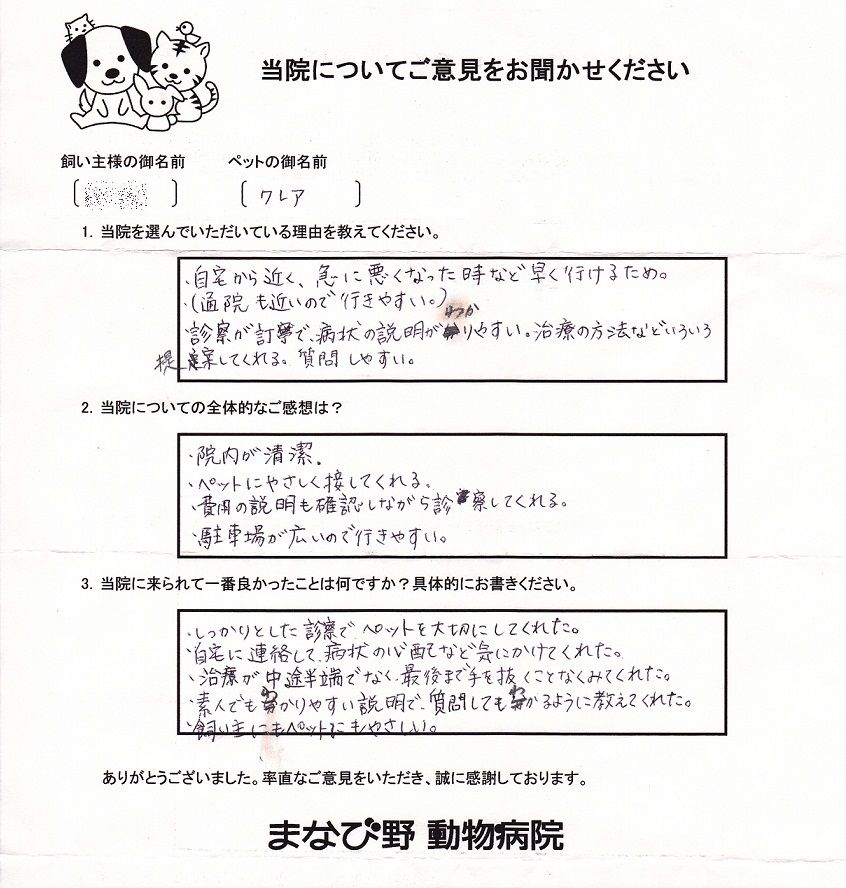 当院についてご意見をお聞かせください
飼い主様の御名前 ペットの御名前
[ ] [ クレア ]
1. 当院を選んでいただいている理由を教えてください。
・自宅から近く、急に悪くなった時など早く行けるため。
・(通院も近いので行きやすい。)
・診察が訂寧で、病状の説明がわかりやすい。治療の方法などいろいろ
提案してくれる。質問しやすい。
2. 当院についての全体的なご感想は？
・院内が清潔.
・ペットにやさしく接してくれる。
・費用の説明も確認しながら診察してくれる。
・駐車場が広いので行きやすい。
3. 当院に来られて一番良かったことは何ですか？具体的にお書きください。
・しっかりとした診察で、ペットを大切にしてくれた。
・自宅に連絡して、病状の心配など気にかけてくれた。
・治療が中途半端でなく、最後まで手を抜くことなくみてくれた。
・素人でもわかりやすい説明で、質問してもわかるように教えてくれた。
・飼い主にもペットにもやさしい。
ありがとうございました。率直なご意見をいただき、誠に感謝しております。
まなび野 動物病院